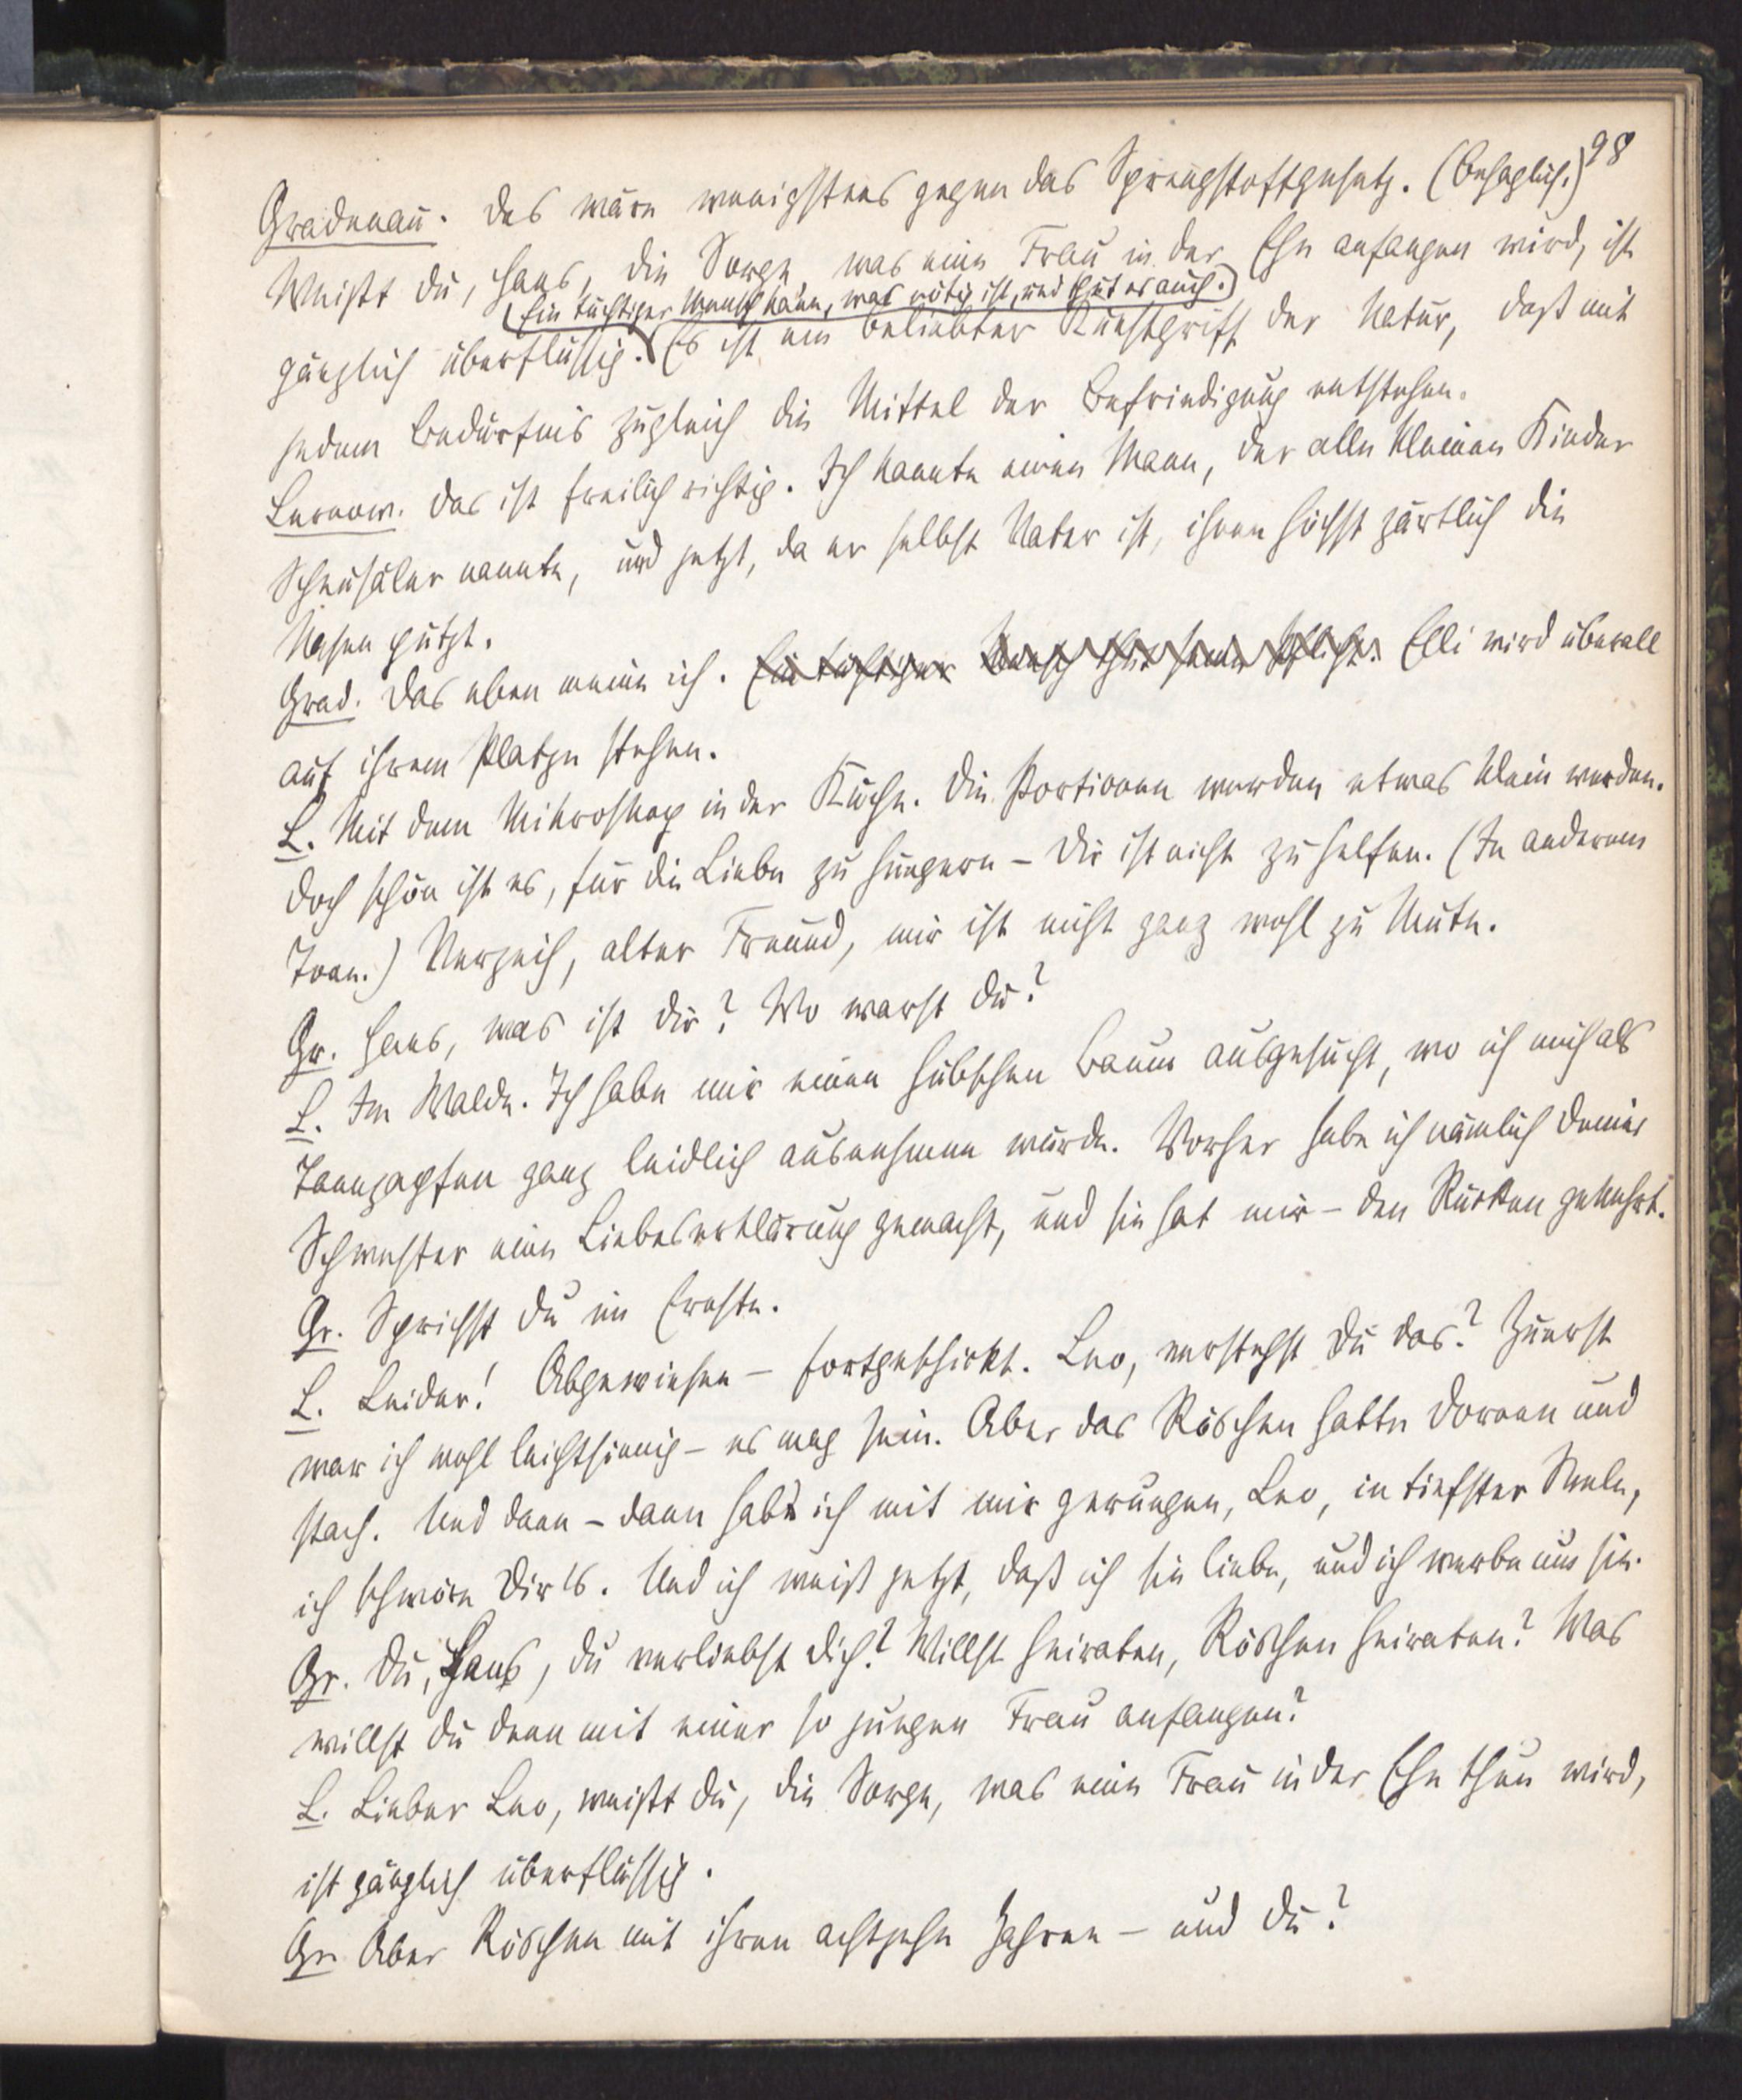 98
Gradenau. Das wäre wenigstens gegen das Sprengstoffgesetz. (Behaglich.)
Weißt du, Hans, die Sorge, was eine Frau in der Ehe anfangen wird, ist
(Ein tüchtiger Mensch kann, was nötig ist, und thut es auch.)
gänzlich überflüssig. Es ist ein beliebter Kunstgriff der Natur, daß mit
jedem Bedürfnis zugleich die Mittel der Befriedigung entstehen.
Lernow. Das ist freilich richtig. Ich kannte einen Mann, der alle kleinen Kinder
Scheusäler nannte, und jetzt, da er selbst Vater ist, ihnen höchst zärtlich die
Nasen putzt.
Grad. Das eben meine ich. Ein tüchtiger Mensch thut seine Pflicht. Elli wird überall
auf ihrem Platze stehen.
L. Mit dem Mikroskop in der Küche. Die Portionen werden etwas klein werden.
Doch schön ist es, für die Liebe zu hungern – Dir ist nicht zu helfen. (In anderem
Ton.) Verzeih, alter Freund, mir ist nicht ganz wohl zu Mute.
Gr. Hans, was ist dir? Wo warst du?
L. Im Walde. Ich habe mir einen hübschen Baum ausgesucht, wo ich mich als
Tannzapfen ganz leidlich ausnehmen würde. Vorher habe ich nämlich deiner
Schwester eine Liebeserklärung gemacht, und sie hat mir – den Rücken gekehrt.
Gr. Sprichst du im Ernste.
L. Leider! Abgewiesen – fortgeschickt. Leo, verstehst du das? Zuerst
war ich wohl leichtsinnig – es mag sein. Aber das Röschen hatte Dornen und
stach. Und dann – dann hab ich mit mir gerungen, Leo, in tiefster Seele,
ich schwöre dir's. Und ich weiß jetzt, daß ich sie liebe, und ich werbe um sie.
Gr. Du, Hans, du verliebst dich? Willst heiraten, Röschen heiraten? Was
willst du denn mit einer so jungen Frau anfangen?
L. Lieber Leo, weißt du, die Sorge, was eine Frau in der Ehe thun wird,
ist gänzlich überflüssig.
Gr. Aber Röschen mit ihren achtzehn Jahren – und du?